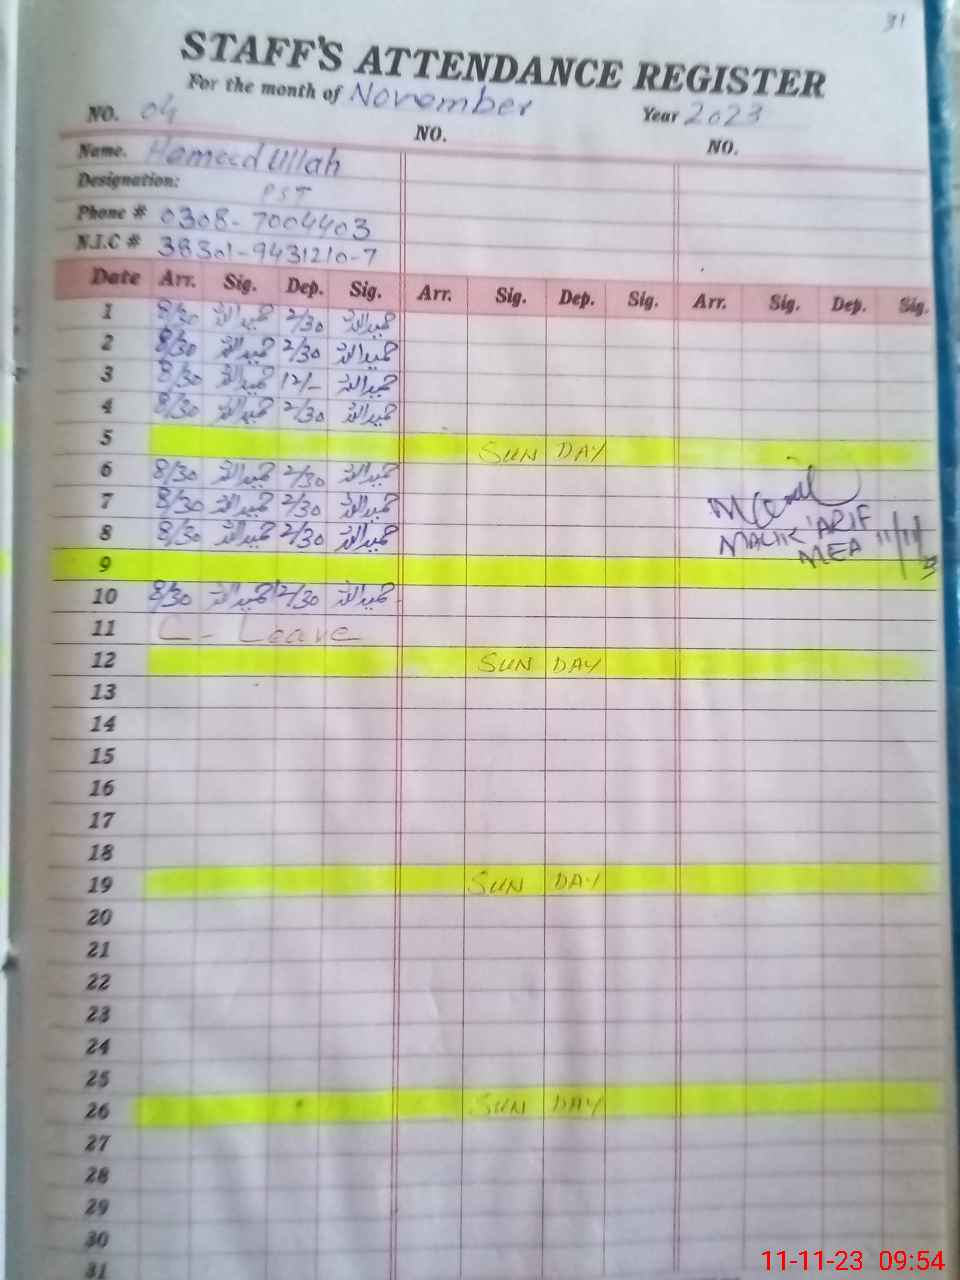 31
STAFF'S ATTENDANCE REGISTER
For the month of November Year 2023
NO. 04 NO. NO.
Name. Hameed Ullah
Designation: PST
Phone # 0308-7004403
N.I.C # 38301-9431210-7
Date Arr. Sig. Dep. Sig. Arr. Sig. Dep. Sig. Arr. Sig. Dep. Sig.
1 8/30 حمیداللہ 2/30 حمیداللہ
2 8/30 حمیداللہ 2/30 حمیداللہ
3 8/30 حمیداللہ 12/- حمیداللہ
4 8/30 حمیداللہ 2/30 حمیداللہ
5 SUN DAY
6 8/30 حمیداللہ 2/30 حمیداللہ
7 8/30 حمیداللہ 2/30 حمیداللہ
8 8/30 حمیداللہ 2/30 حمیداللہ
MALIK ARIF
MEA 11/11/23
9
10 8/30 حمیداللہ 12/30 حمیداللہ
11 C - Leave
12 SUN DAY
13
14
15
16
17
18
19 SUN DAY
20
21
22
23
24
25
26 SUN DAY
27
28
29
30
31
11-11-23 09:54